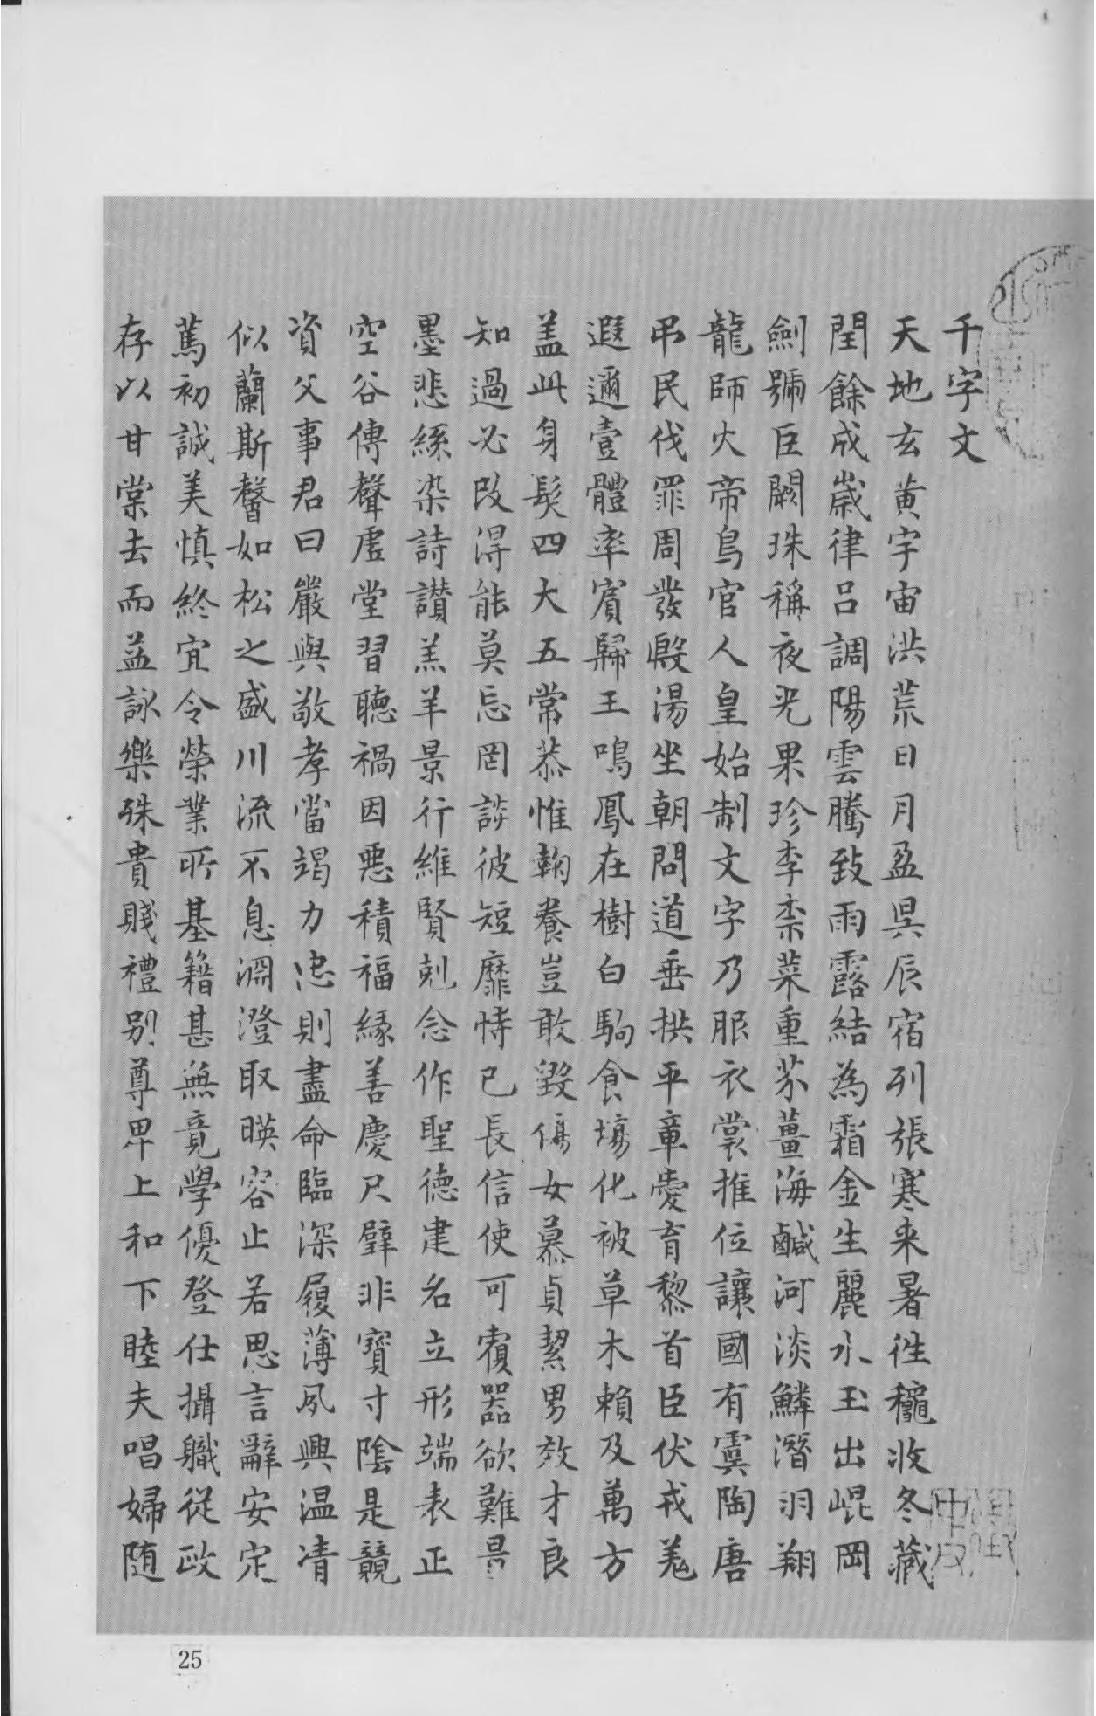 千字文
天地玄黄宇宙洪荒日月盈昃辰宿列張寒来暑徃穐收冬藏
閏餘成歲律吕調陽雲騰致雨露結為霜金生麗水玉出崐岡
劍號巨闕珠稱夜光果珍李柰菜重芥薑海鹹河淡鱗潛羽翔
龍師火帝鳥官人皇始制文字乃服衣裳推位讓國有虞陶唐
吊民伐罪周發殷湯坐朝問道垂拱平章愛育黎首臣伏戎羌
遐邇壹體率賓歸王鳴鳳在樹白駒食場化被草木賴及萬方
盖此身髮四大五常恭惟鞠養豈敢毀傷女慕貞絜男效才良
知過必改得能莫忘罔談彼短靡恃己長信使可覆器欲難量
墨悲絲染詩讃羔羊景行維賢剋念作聖德建名立形端表正
空谷傳聲虚堂習聽禍因惡積福緣善慶尺璧非寶寸陰是競
資父事君曰嚴與敬孝當竭力忠則盡命臨深履薄夙興温凊
似蘭斯馨如松之盛川流不息淵澄取暎容止若思言辭安定
篤初誠美慎終宜令榮業所基籍甚無竟學優登仕攝職從政
存以甘棠去而益詠樂殊貴賤禮别尊卑上和下睦夫唱婦随
25